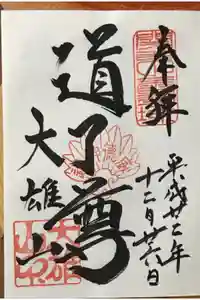 奉拝
道了尊
大雄山
平成廿二年
十二月廿六日